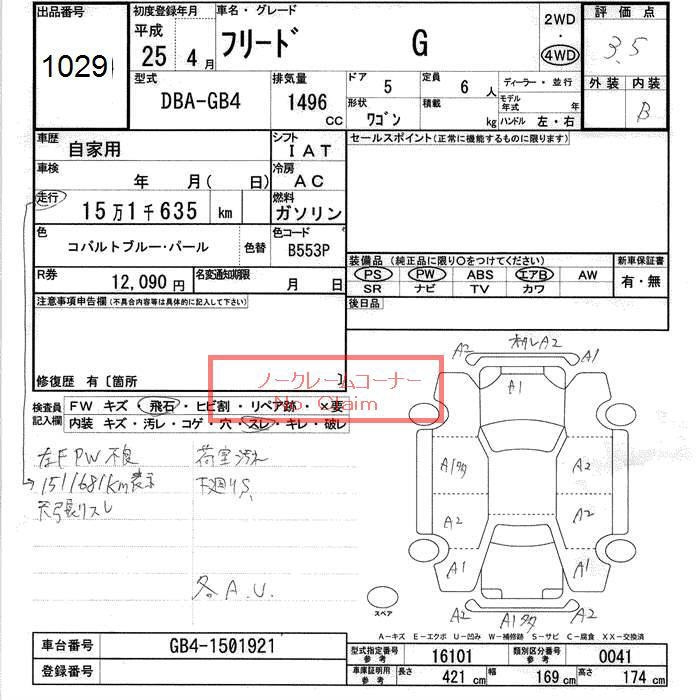 出品番号
1029
初度登録年月
平成
25 4月
車名・グレード
フリード G
2WD
・
4WD
評価点
3.5
型式
DBA-GB4
排気量
1496
CC
ドア 5
定員 6 人
形状 ワゴン
積載 kg
ディーラー・並行
モデル年式 年
ハンドル 左・右
外装 内装
B
車歴 自家用
シフト IAT
車検 年 月( 日)
冷房 AC
走行 15万1千635 km
燃料 ガソリン
色 コバルトブルー・パール 色替
色コード B553P
R券 12,090円
名変通知期限 月 日
セールスポイント(正常に機能するものに限ります)
装備品(純正品に限り○をつけてください)
PS PW ABS エアB AW
SR ナビ TV カワ
新車保証書
有・無
後日品
注意事項申告欄(不具合内容等は具体的に記入して下さい)
修復歴 有〔箇所 〕
ノークレームコーナー
No Claim
検査員
記入欄
FW キズ・飛石・ヒビ割・リペア跡・×要
内装 キズ・汚レ・コゲ・穴・スレ・キレ・破レ
左F PW不良
151168km表示
荷室汚れ
下廻りS
A.U.
A2 A2 A1
A1
A1多 A2
A2 A2
A1 A1
A2 A1多 A2
スペア
A-キズ E-エクボ U-凹み W-補修跡 S-サビ C-腐食 XX-交換済
車台番号 GB4-1501921
登録番号
型式指定番号
参考
16101
類別区分番号
参考
0041
車庫証明用
参考
長さ 421 cm
幅 169 cm
高さ 174 cm